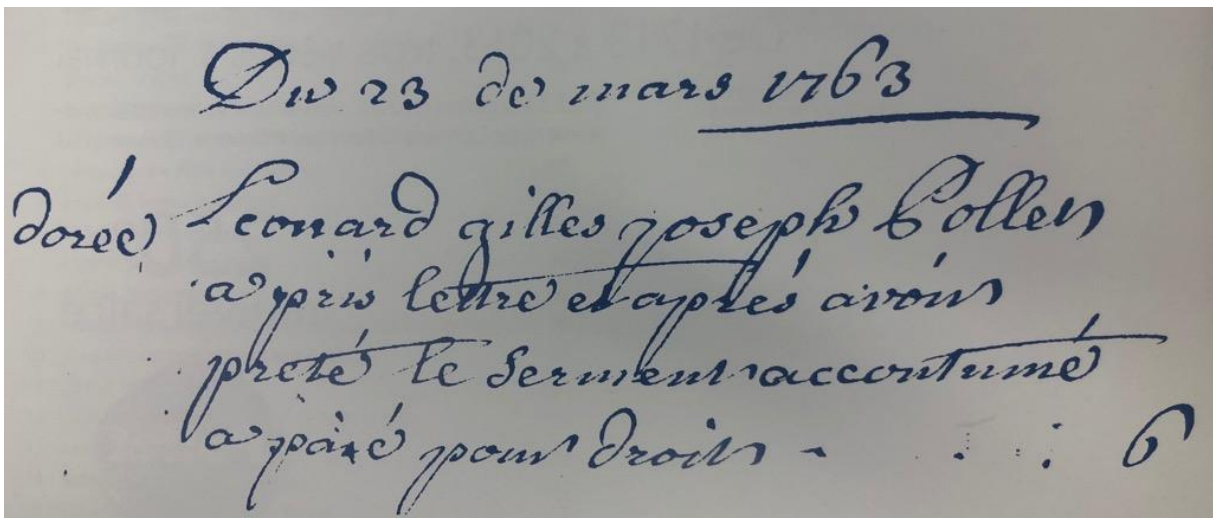 Du 23 de mars 1763
dorée Leonard gilles joseph Pollet
a pris lettre et aprés avoir
preté le serment accoutumé
a paié pour droit - 6